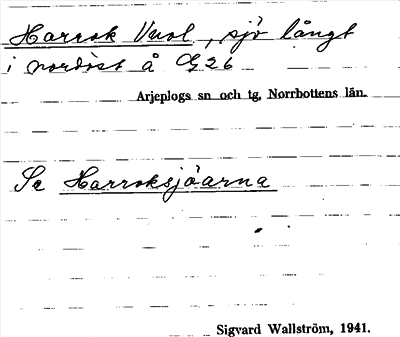 Harrok Vuol, sjö långt
i nordöst å G 26
Arjeplogs sn och tg, Norrbottens län.
Se Harroksjöarna
Sigvard Wallström, 1941.